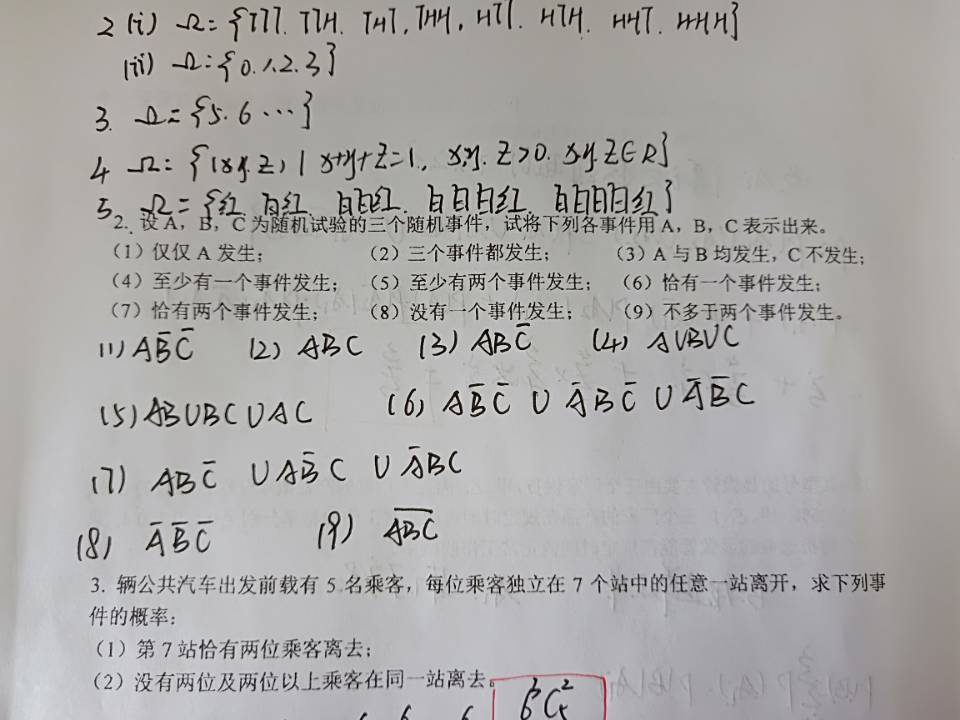 2 (i) Ω={TTT. TTH. THT. THH. HTT. HTH. HHT. HHH}
(ii) Ω={0.1.2.3}
3. Ω={5.6 ···}
4 Ω={(x.y.z) | x+y+z=1., x,y.z>0. x.y.z∈R}
5. Ω={红. 白红. 白白红. 白白白红. 白白白白红}
2. 设 A，B，C 为随机试验的三个随机事件，试将下列各事件用 A，B，C 表示出来。
（1）仅仅 A 发生； （2）三个事件都发生； （3）A 与 B 均发生，C 不发生；
（4）至少有一个事件发生； （5）至少有两个事件发生； （6）恰有一个事件发生；
（7）恰有两个事件发生； （8）没有一个事件发生； （9）不多于两个事件发生。
(1) AB̅C̅ (2) ABC (3) ABC̅ (4) A∪B∪C
(5) AB∪BC∪AC (6) AB̅C̅ ∪ A̅BC̅ ∪ A̅B̅C
(7) ABC̅ ∪ AB̅C ∪ A̅BC
(8) A̅B̅C̅ (9) A̅B̅C̅
3. 辆公共汽车出发前载有 5 名乘客，每位乘客独立在 7 个站中的任意一站离开，求下列事
件的概率：
（1）第 7 站恰有两位乘客离去；
（2）没有两位及两位以上乘客在同一站离去。
6³C₅²